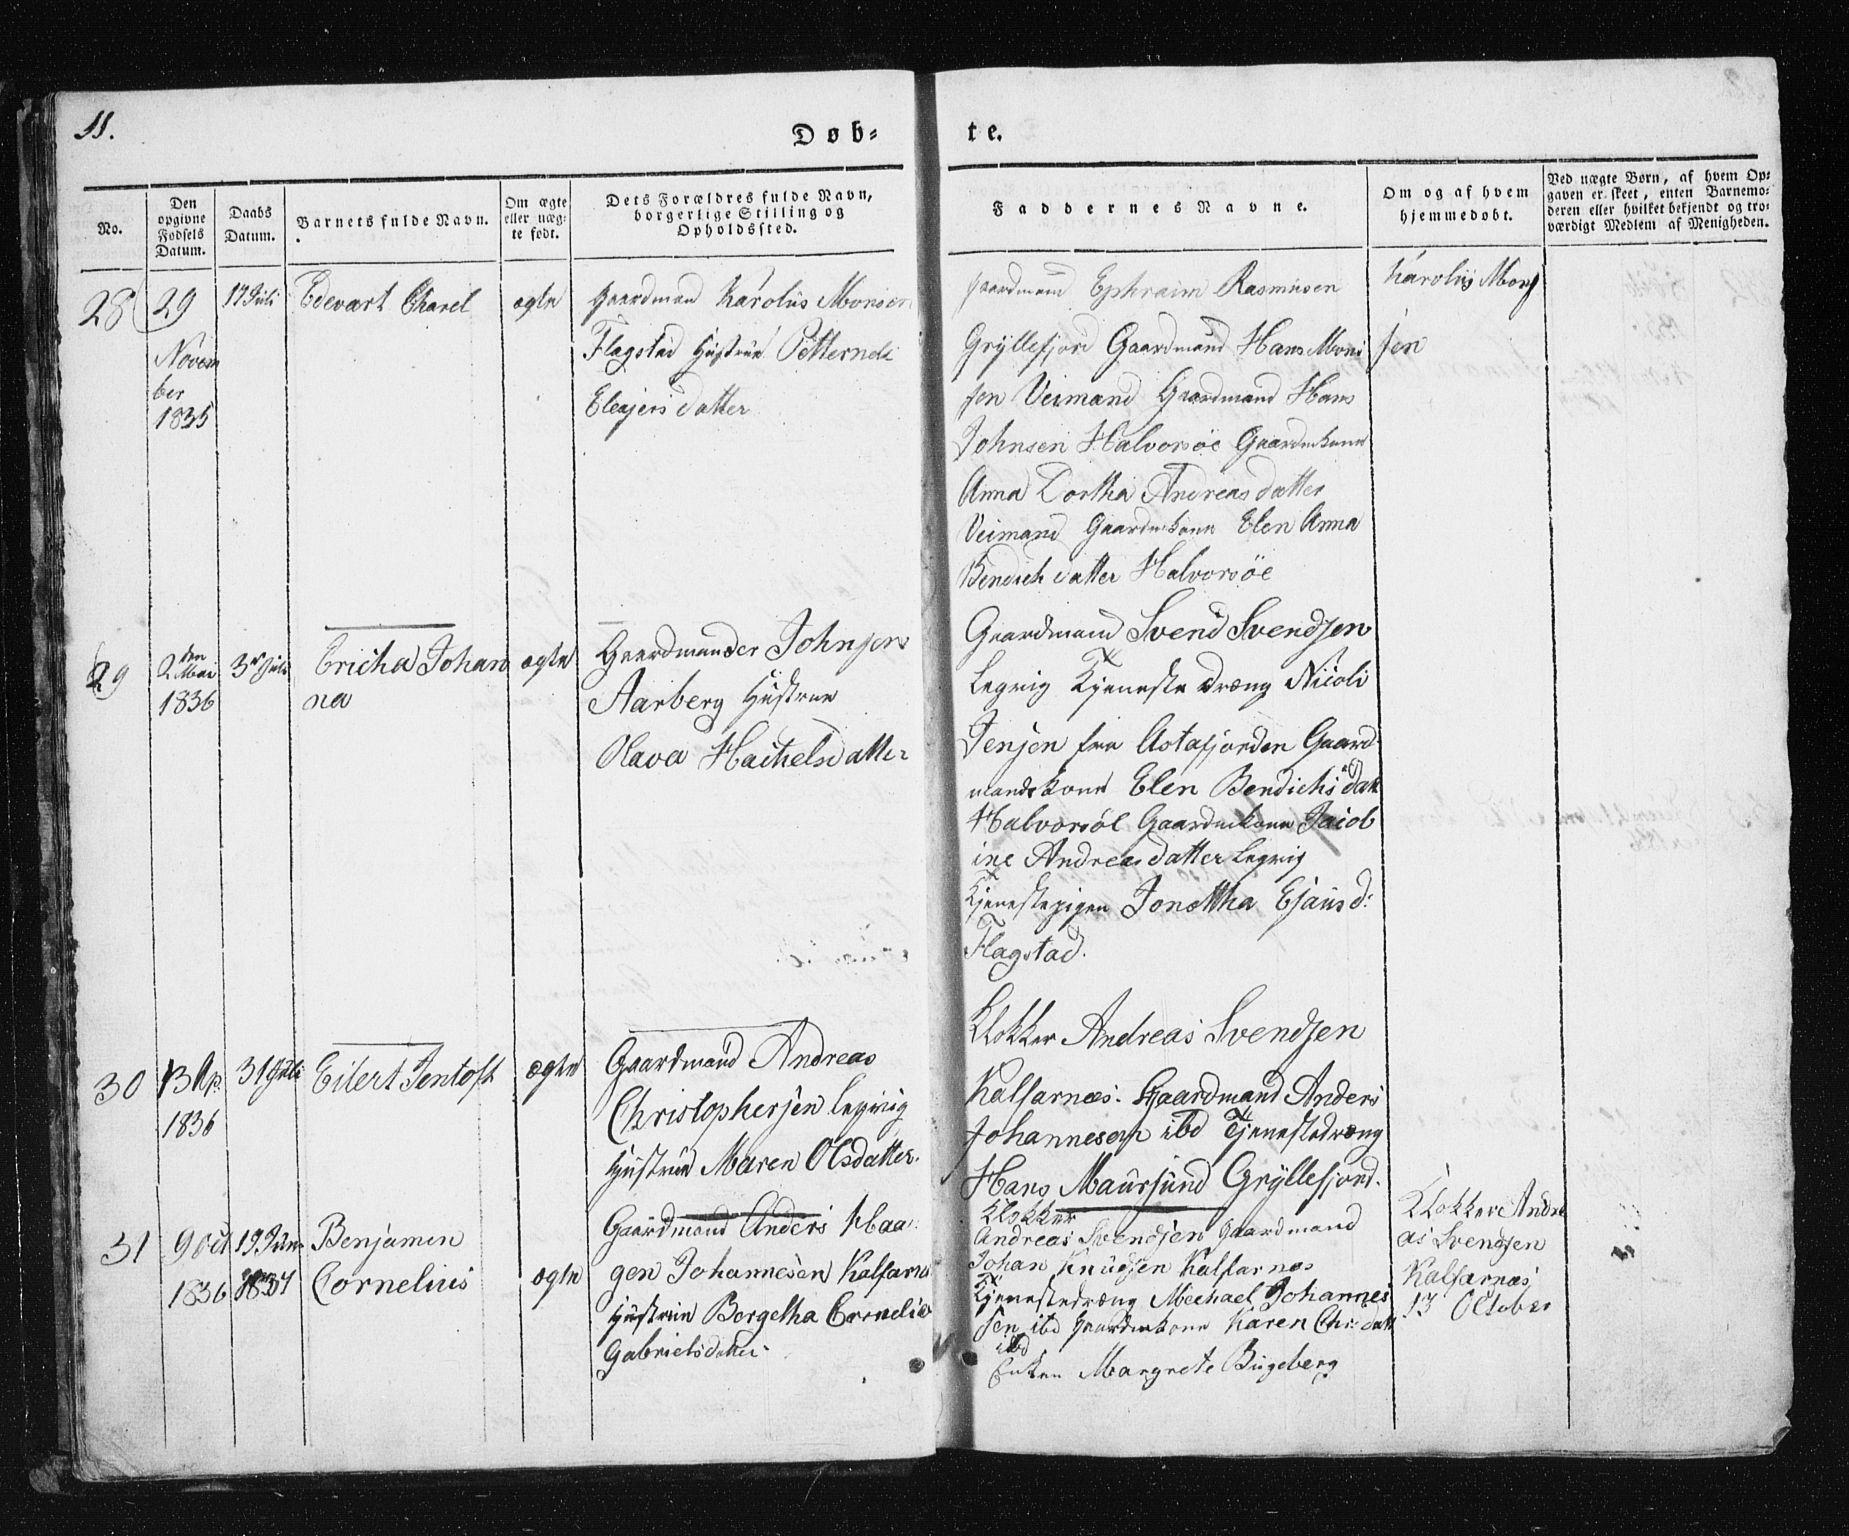 11.
Døb=
te.
No.
Den opgivne Fødsels Datum.
Daabs Datum.
Barnets fulde Navn.
Om ægte eller uæg- te født.
Dets Forældres fulde Navn, borgerlige Stilling og Opholdssted.
Faddernes Navne.
Om og af hvem hjemmedøbt.
Ved uægte Børn, af hvem Op- gaven er skeet, enten Barnemo- deren eller hvilket bekjendt og tro- værdigt Medlem af Menigheden.
28
29
Novem
ber
1835
17 Juli
Edevart Charel
ægte
Gaardmand Karolus Monsen
Flagstad Hustrue Petternele
Eleajers datter
Gaardmand Ephraim Rasmusen
Gryllefjord Gaardmand Hans Mons
sen Veimand Gaardmand Hans
Johnsen Halvorsøe Gaardmkone
Anna Dortha Andreas datter
Veimand Gaardmkone Elen Anna
Bendich datter Halvorsøe
Karolus Mons
sen
29
2 den Mai
1836
3 Juli
Ericha Johan
na
ægte
Gaardmand Johnsen
Aarberg Hustrue
Olava Hachelsdatter
Gaardmand Svend Svendsen
Legvig Tjeneste dræng Nicoli
Jensen fra Astafjorden Gaard
mandskone Elen Bendichs datt
Halvorsöe Gaardmkone Jacob
ine Andreasdatter Legvig
Tjenestepigen Jonettha Ejaus d:
Flagstad.
30
13 Ap.
1836
31 Juli
Eilert Jentoft
ægte
Gaardmand Andreas
Christophersen Legvig
Hustrue Maren Olsdatter.
Klokker Andreas Svendsen
Kalfarnæs. Gaardmand Anders
Johannesen ibd Tjenestedræng
Hans Maursund Gryllefjord.
31
9 Oct
1836
19 Jun
1837
Benjamen
Cornelius
ægte
Gaardmand Anders Haa
gen Johannesen Kalfarnes
Hustrue Bergetha Cornelia
Gabrielsdatter
Klokker
Andreas Svendsen Gaardmand
Johan Knudsen Kalfarnæs
Tjenestedræng Mechael Johannes
sen ibd Gaardmkone Karen Chr: datt
ibd
Enken Margrete Bugeberg
Klokker Andre
as Svendsen
Kalfarnæs
13 October